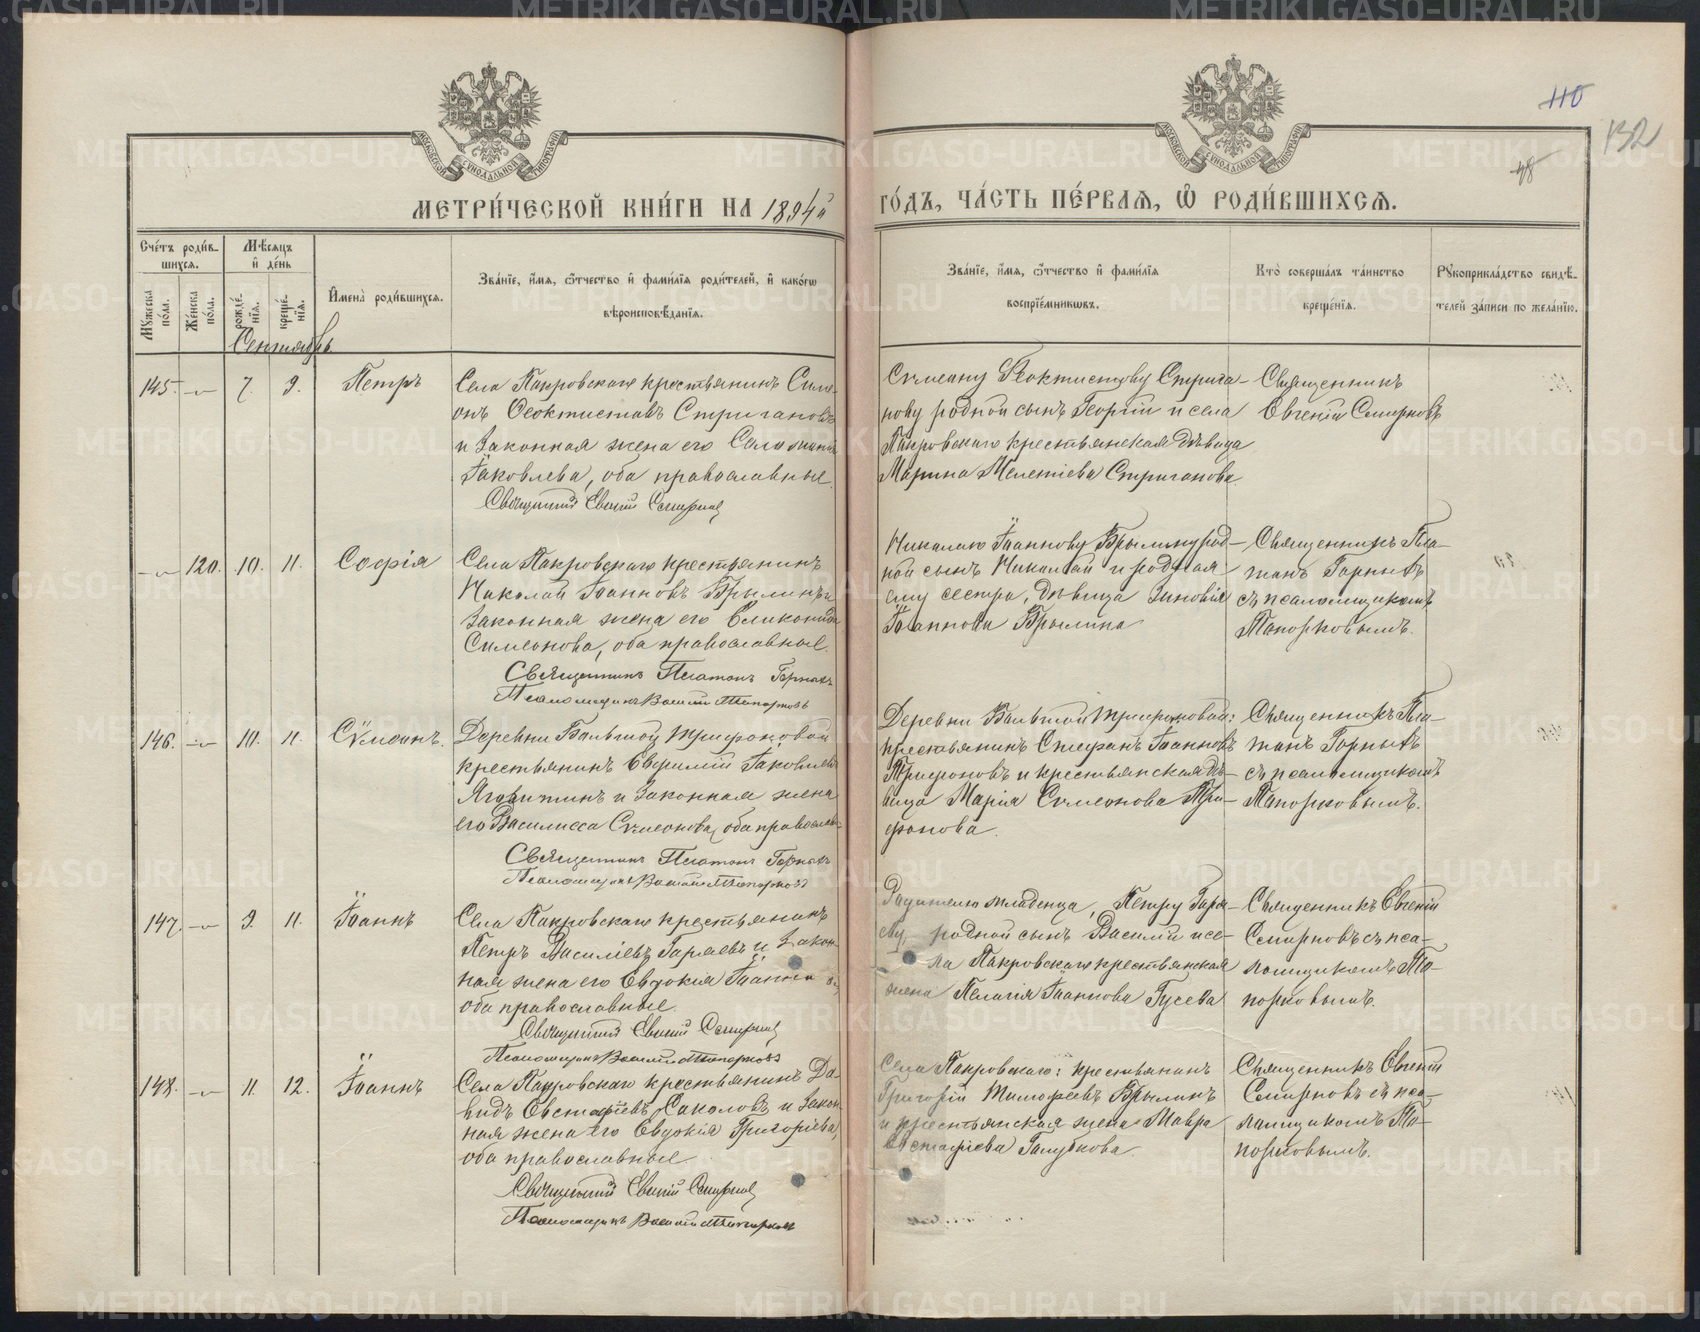 МЕТРИ́ЧЕСКОЙ КНИ́ГИ НА 1894й ГО́ДЪ, ЧА́СТЬ ПЕ́РВАѦ, Ѡ РОДИ́ВШИХСѦ.
110
132
48
Сче́тъ роди́в-
шихсѧ.
Мꙋ́жеска по́ла.
Же́нска по́ла.
Мѣ́сѧцъ
и҆ де́нь
рожде́нїѧ.
креще́нїѧ.
И҆мена̀ роди́вшихсѧ.
Зва́нїе, и҆́мѧ, ѻ҆́тчество и҆ фами́лїѧ роди́телей, и҆ како́гѡ
вѣроисповѣ́данїѧ.
Зва́нїе, и҆́мѧ, ѻ҆́тчество и҆ фами́лїѧ
воспрїе́мникѡвъ.
Кто̀ соверша́лъ та́инство
креще́нїѧ.
Рꙋкоприкла́дство свидѣ́-
телей за́писи по жела́нїю.
Сентябрь
145. 7. 9. Петръ
Села Покровскаго крестьянинъ Симе-
онъ Ѳеоктистовъ Стригановъ
и законная жена его Соломонія
Іаковлева, оба православные.
Священникъ Евгеній Смирновъ
Сѵмеону Ѳеоктистову Стрига-
нову родной сынъ Георгій и села
Покровскаго крестьянская дѣвица
Марина Мелетіева Стриганова.
Священникъ
Евгеній Смирновъ
120. 10. 11. Софія
Села Покровскаго крестьянинъ
Николай Іоанновъ Брылинъ и
законная жена его
Симеонова, оба православные.
Священникъ Платонъ Горныхъ
Псаломщикъ Василій Топорковъ
Николаю Іоаннову Брылину род-
ной сынъ Николай и родная
ему сестра, дѣвица Зиновія
Іоаннова Брылина
Священникъ Пла-
тонъ Горныхъ
съ псаломщикомъ
Топорковымъ.
146. 10. 11. Сѵмеонъ.
Деревни Большой Трифоновой
крестьянинъ Евфимій Іаковлевъ
и законная жена
его Василисса Сѵмеонова, оба православн.
Священникъ Платонъ Горныхъ
Псаломщикъ Василій Топорковъ
Деревни Большой Трифоновой:
крестьянинъ Стефанъ Іоанновъ
Трифоновъ и крестьянская дѣ-
вица Марія Сѵмеонова Три-
фонова.
Священникъ Пла-
тонъ Горныхъ
съ псаломщикомъ
Топорковымъ.
147. 9. 11. Іоаннъ
Села Покровскаго крестьянинъ
Петръ Василіевъ Горяевъ и закон-
ная жена его Евдокія Іоаннова,
оба православные.
Священникъ Евгеній Смирновъ
Псаломщикъ Василій Топорковъ
Родителю младенца, Петру Горяе-
ву, родной сынъ Василій и се-
ла Покровскаго крестьянская
жена Пелагія Іоаннова Гусева
Священникъ Евгеній
Смирновъ съ пса-
ломщикомъ То-
порковымъ.
148. 11. 12. Іоаннъ
Села Покровскаго крестьянинъ Да-
видъ Евстафіевъ Соколовъ и закон-
ная жена его Евдокія Григоріева,
оба православные.
Священникъ Евгеній Смирновъ
Псаломщикъ Василій Топорковъ
Села Покровскаго: крестьянинъ
Григорій Тимофеевъ Брылинъ
и крестьянская жена Мавра
Евстафіева Голубкова.
Священникъ Евгеній
Смирновъ съ пса-
ломщикомъ То-
порковымъ.
METRIKI.GASO-URAL.RU